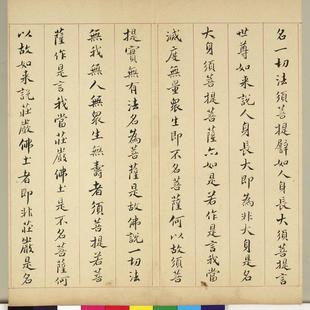 名一切法須菩提譬如人身長大須菩提言
世尊如来說人身長大即為非大身是名
大身須菩提菩薩亦如是若作是言我當
滅度無量眾生即不名菩薩何以故須菩
提實無有法名為菩薩是故佛說一切法
無我無人無眾生無壽者須菩提若菩
薩作是言我當莊嚴佛土是不名菩薩何
以故如来說莊嚴佛土者即非莊嚴是名